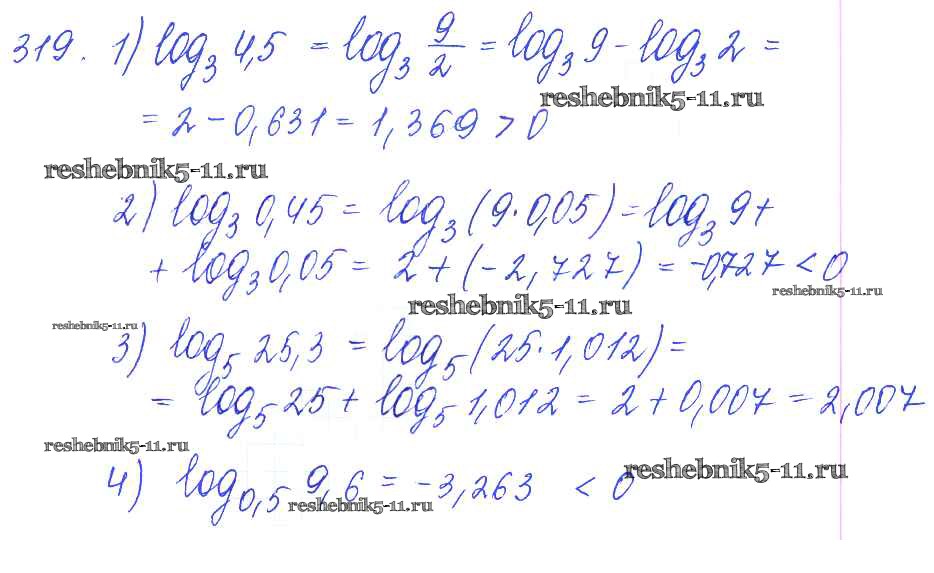 319. 1) log₃ 4,5 = log₃ 9/2 = log₃ 9 - log₃ 2 =
reshebnik5-11.ru
= 2 - 0,631 = 1,369 > 0
reshebnik5-11.ru
2) log₃ 0,45 = log₃ (9 · 0,05) = log₃ 9 +
+ log₃ 0,05 = 2 + (-2,727) = -0,727 < 0
reshebnik5-11.ru
reshebnik5-11.ru
reshebnik5-11.ru
3) log₅ 25,3 = log₅ (25 · 1,012) =
= log₅ 25 + log₅ 1,012 = 2 + 0,007 = 2,007
reshebnik5-11.ru
4) log₀,₅ 9,6 = -3,263 < 0
reshebnik5-11.ru
reshebnik5-11.ru